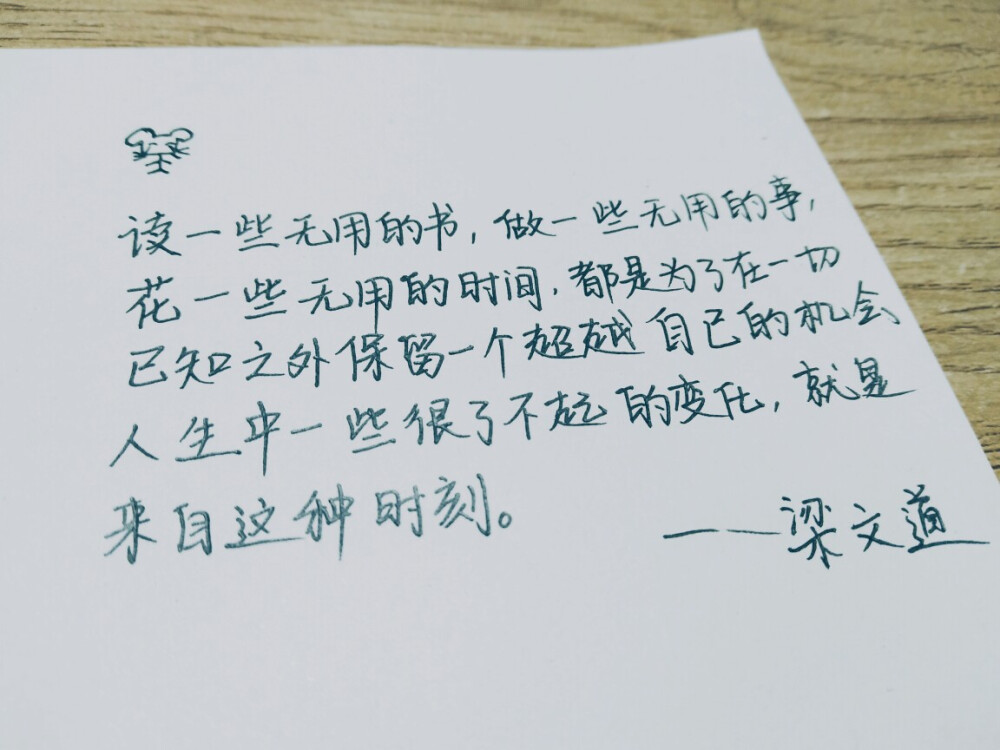 读一些无用的书，做一些无用的事，
花一些无用的时间，都是为了在一切
已知之外保留一个超越自己的机会
人生中一些很了不起的变化，就是
来自这种时刻。
——梁文道